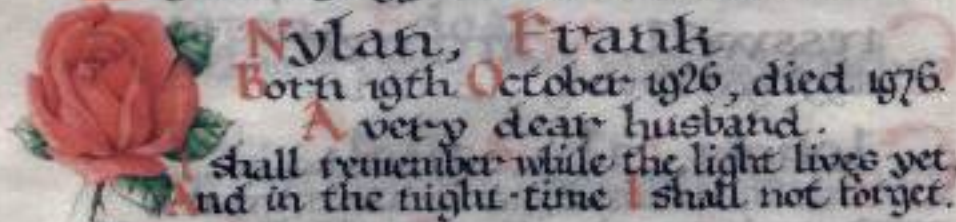 Nylan, Frank
Born 19th October 1926, died 1976.
A very dear husband.
I shall remember while the light lives yet
And in the night-time I shall not forget.